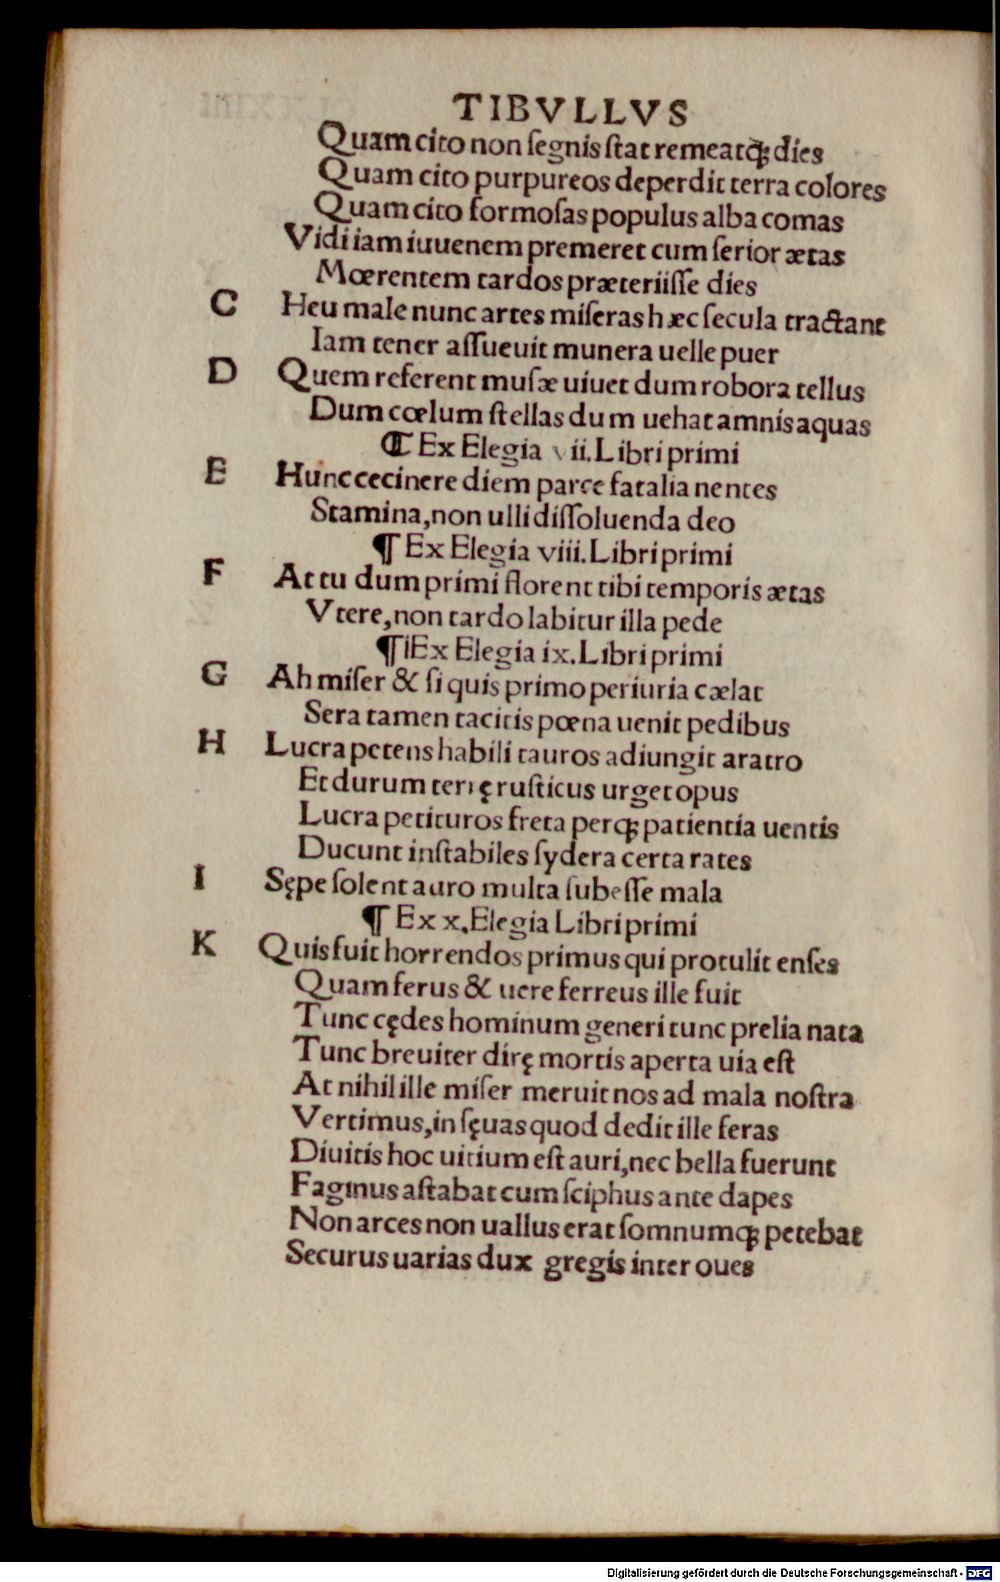 TIBVLLVS
Quam cito non ſegnis ſtat remeatqꝫ dies
Quam cito purpureos deperdit terra colores
Quam cito formoſas populus alba comas
Vidi iam iuuenem premeret cum ſerior ætas
Mœrentem tardos præteriiſſe dies
C Heu male nunc artes miſeras hæc ſecula tractant
Iam tener aſſueuit munera uelle puer
D Quem referent muſæ uiuet dum robora tellus
Dum cœlum ſtellas dum uehat amnis aquas
¶ Ex Elegia vii. Libri primi
E Hunc cecinere diem parce fatalia nentes
Stamina, non ulli diſſoluenda deo
¶ Ex Elegia viii. Libri primi
F At tu dum primi florent tibi temporis ætas
Vtere, non tardo labitur illa pede
¶ Ex Elegia ix. Libri primi
G Ah miſer & ſi quis primo periuria cælat
Sera tamen tacitis pœna uenit pedibus
H Lucra petens habili tauros adiungit aratro
Et durum terrę ruſticus urget opus
Lucra petituros freta perqꝫ patientia uentis
Ducunt inſtabiles ſydera certa rates
I Sępe ſolent auro multa ſubeſſe mala
¶ Ex x. Elegia Libri primi
K Quis fuit horrendos primus qui protulit enſes
Quam ferus & uere ferreus ille fuit
Tunc cędes hominum generi tunc prelia nata
Tunc breuiter dirę mortis aperta uia eſt
At nihil ille miſer meruit nos ad mala noſtra
Vertimus, in ſęuas quod dedit ille feras
Diuitis hoc uitium eſt auri, nec bella fuerunt
Faginus aſtabat cum ſciphus ante dapes
Non arces non uallus erat ſomnumqꝫ petebat
Securus uarias dux gregis inter oues
Digitalisierung gefördert durch die Deutsche Forschungsgemeinschaft - DFG